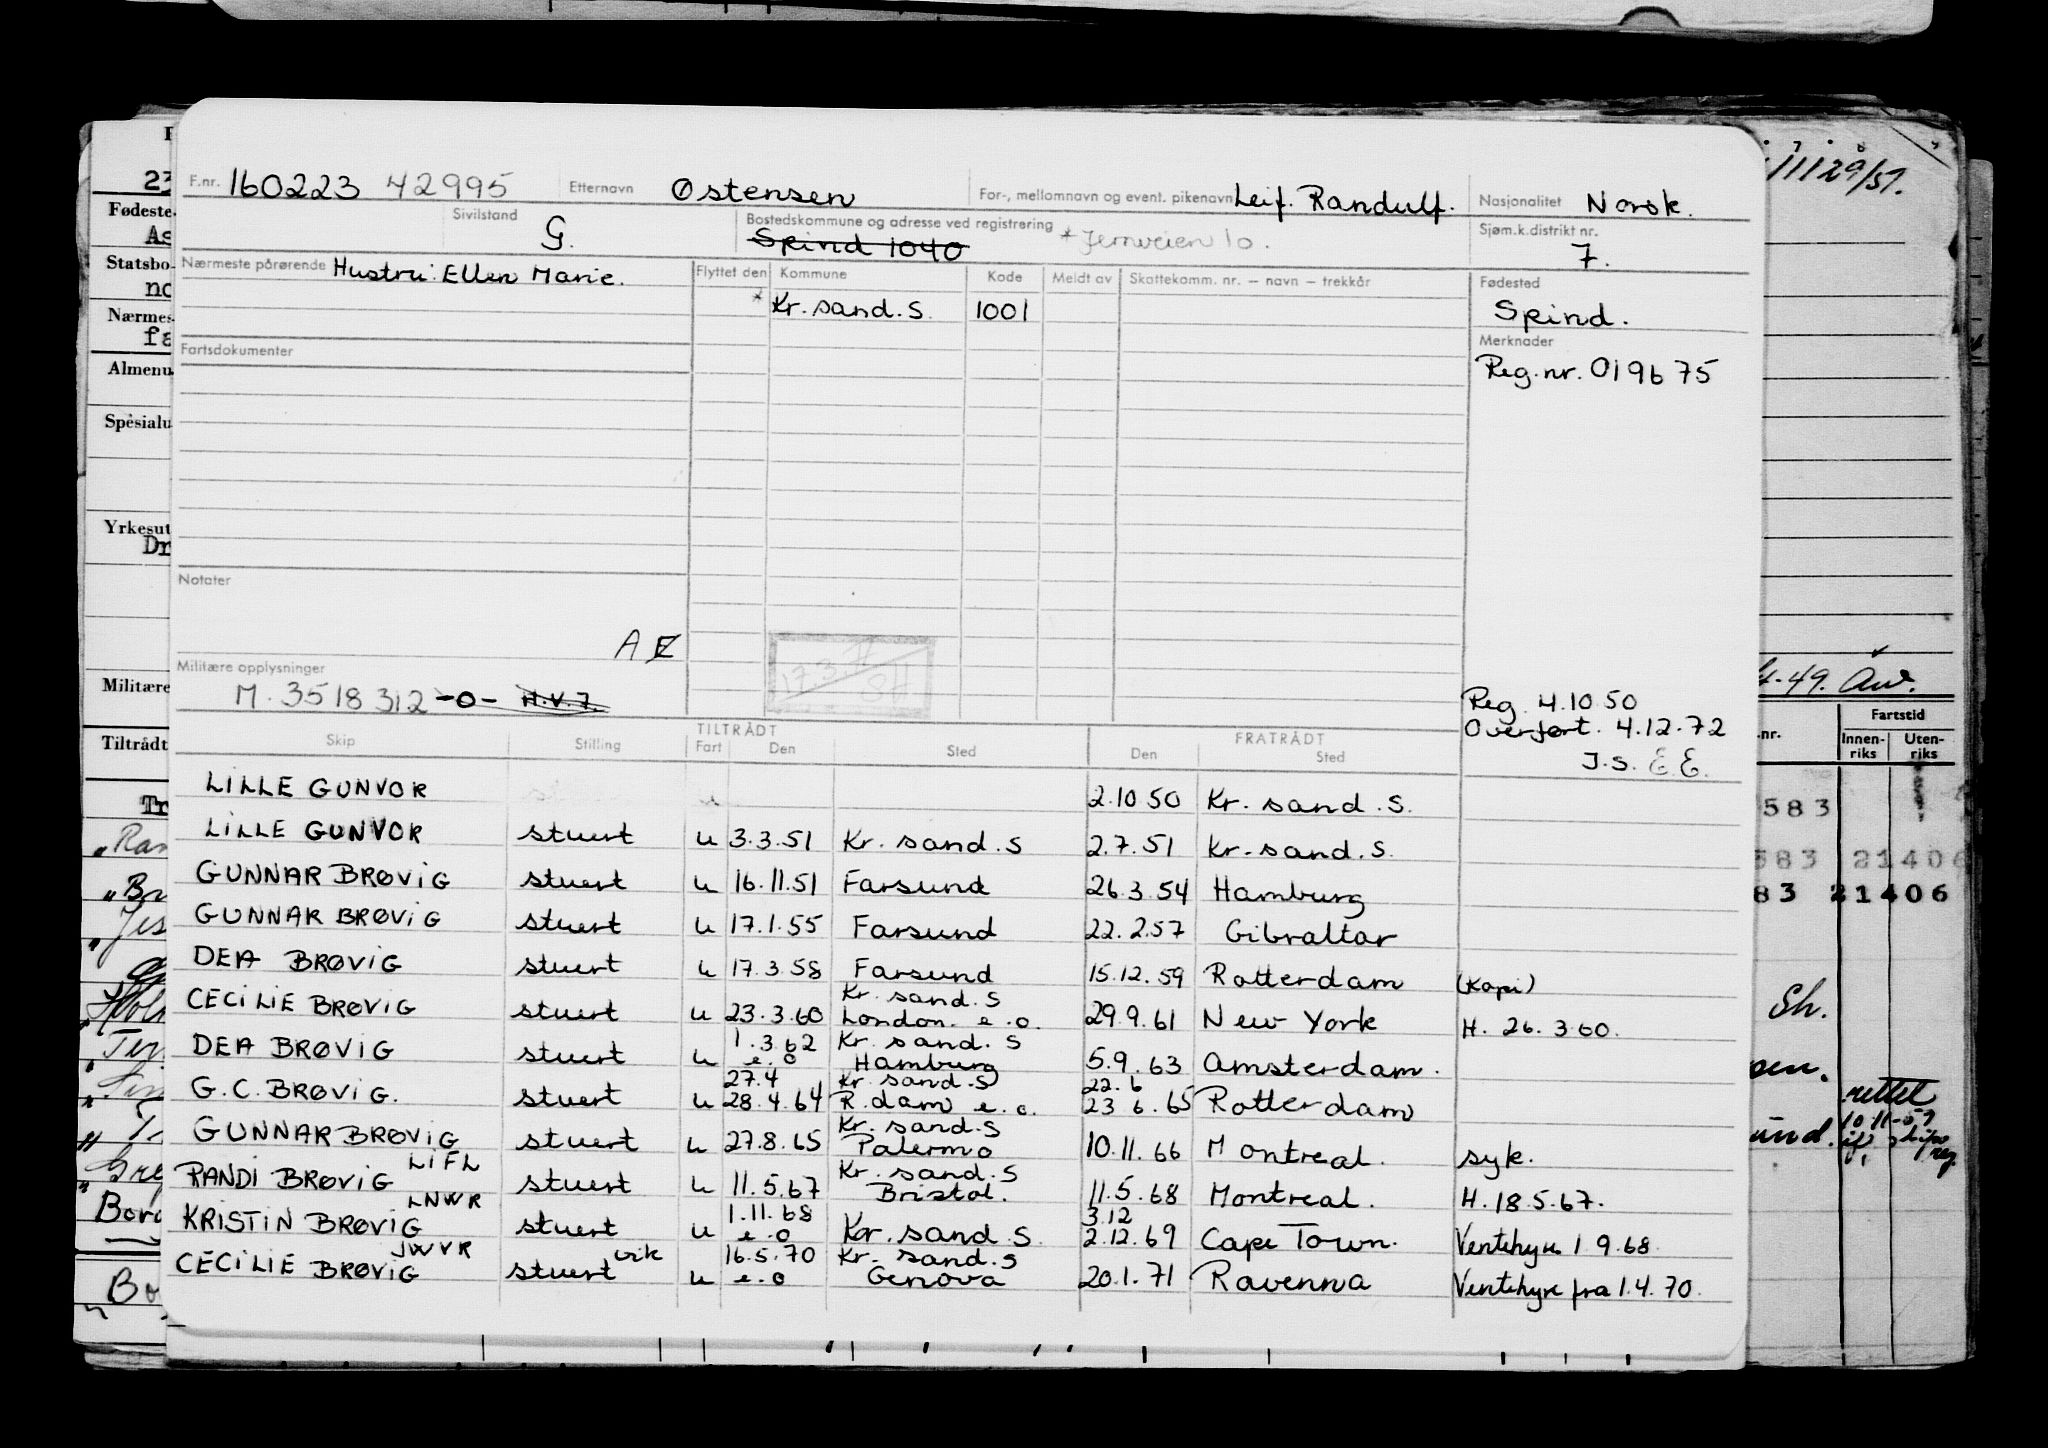 F.nr. 160223 42995 Etternavn Østensen For-, mellomnavn og event. pikenavn Leif. Randulf. Nasjonalitet Norsk.
Sivilstand G. Bostedskommune og adresse ved registrering Spind 1040 * Jernveien 10. Sjøm.k.distrikt nr. 7.
Nærmeste pårørende Hustru: Ellen Marie. Flyttet den Kommune Kode Meldt av Skattekomm. nr. – navn – trekkår Fødested
* Kr. sand. S. 1001 Spind.
Fartsdokumenter Merknader
Reg. nr. 019675
Notater
A E
Militære opplysninger 17.3
M. 3518312 -0- H.V.7. Reg. 4.10.50
Overført. 4.12.72
J.S. E.E.
TILTRÅDT FRATRÅDT
Skip Stilling Fart Den Sted Den Sted
LILLE GUNVOR 2.10 50 Kr. sand. S.
LILLE GUNVOR stuert u 3.3.51 Kr. sand. S 2.7.51 Kr. sand. S.
GUNNAR BRØVIG stuert u 16.11.51 Farsund 26.3.54 Hamburg
GUNNAR BRØVIG stuert u 17.1.55 Farsund 22.2.57 Gibraltar
DEA BRØVIG stuert u 17.3.58 Farsund 15.12.59 Rotterdam (Kopi)
CECILIE BRØVIG stuert u 23.3.60 Kr. sand. S London e.o. 29.9.61 New York H. 26.3.60.
DEA BRØVIG stuert u 1.3.62 e.o Kr. sand. S Hamburg 5.9.63 Amsterdam.
G.C. BRØVIG. stuert u 27.4 28.4.64 Kr. sand. S R.dam e.o. 22.6 23 6.65 Rotterdam
GUNNAR BRØVIG stuert u 27.8.65 Kr. sand. S Palermo 10.11.66 Montreal. syk.
RANDI BRØVIG LIFL stuert u 11.5.67 Kr. sand. S Bristol. 11.5.68 Montreal. H. 18.5.67.
KRISTIN BRØVIG LNWR stuert u 1.11.68 e.o Kr. sand. S. 3.12 2.12.69 Cape Town. Ventehyre 1.9.68.
CECILIE BRØVIG JWVR stuert vik u 16.5.70 e.o Kr. sand. S Genova 20.1.71 Ravenna Ventehyre fra 1.4.70.
23
Fødeste
As
Statsbo
no
Nærmes
fa
Almenu
Spesialu
Yrkesut
Dr
Militære
Tiltrådt
29/51.
4-49.
nr. Fartstid
Innen- riks Uten- riks
583
583 21406
83 21406
Sh.
rettet
10.11-59